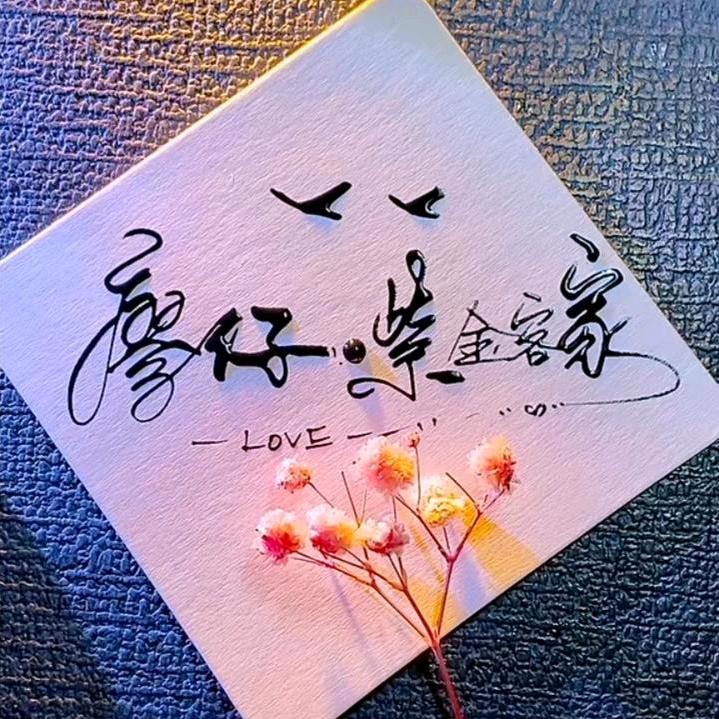 廖仔·紫金客家
— LOVE —